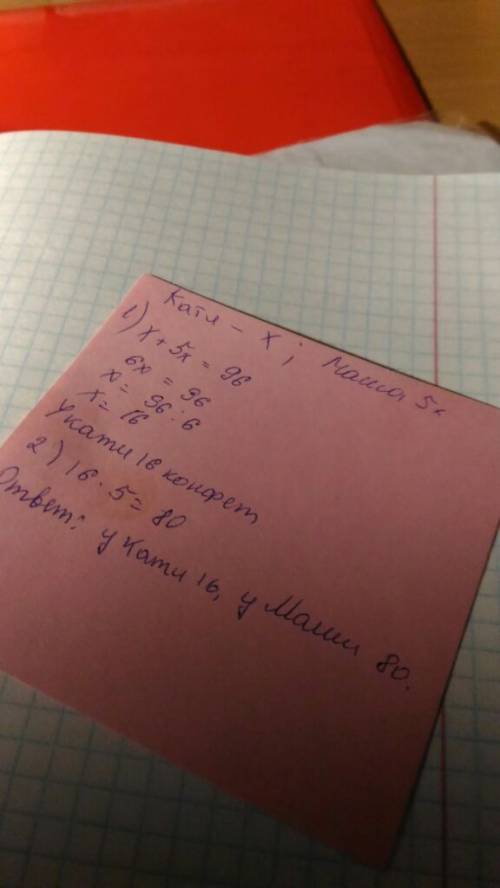 Катя - х ; Маша 5х
1) х + 5х = 96
6х = 96
х = 96 : 6
х = 16
У кати 16 конфет
2) 16 · 5 = 80
Ответ: у Кати 16, у Маши 80.